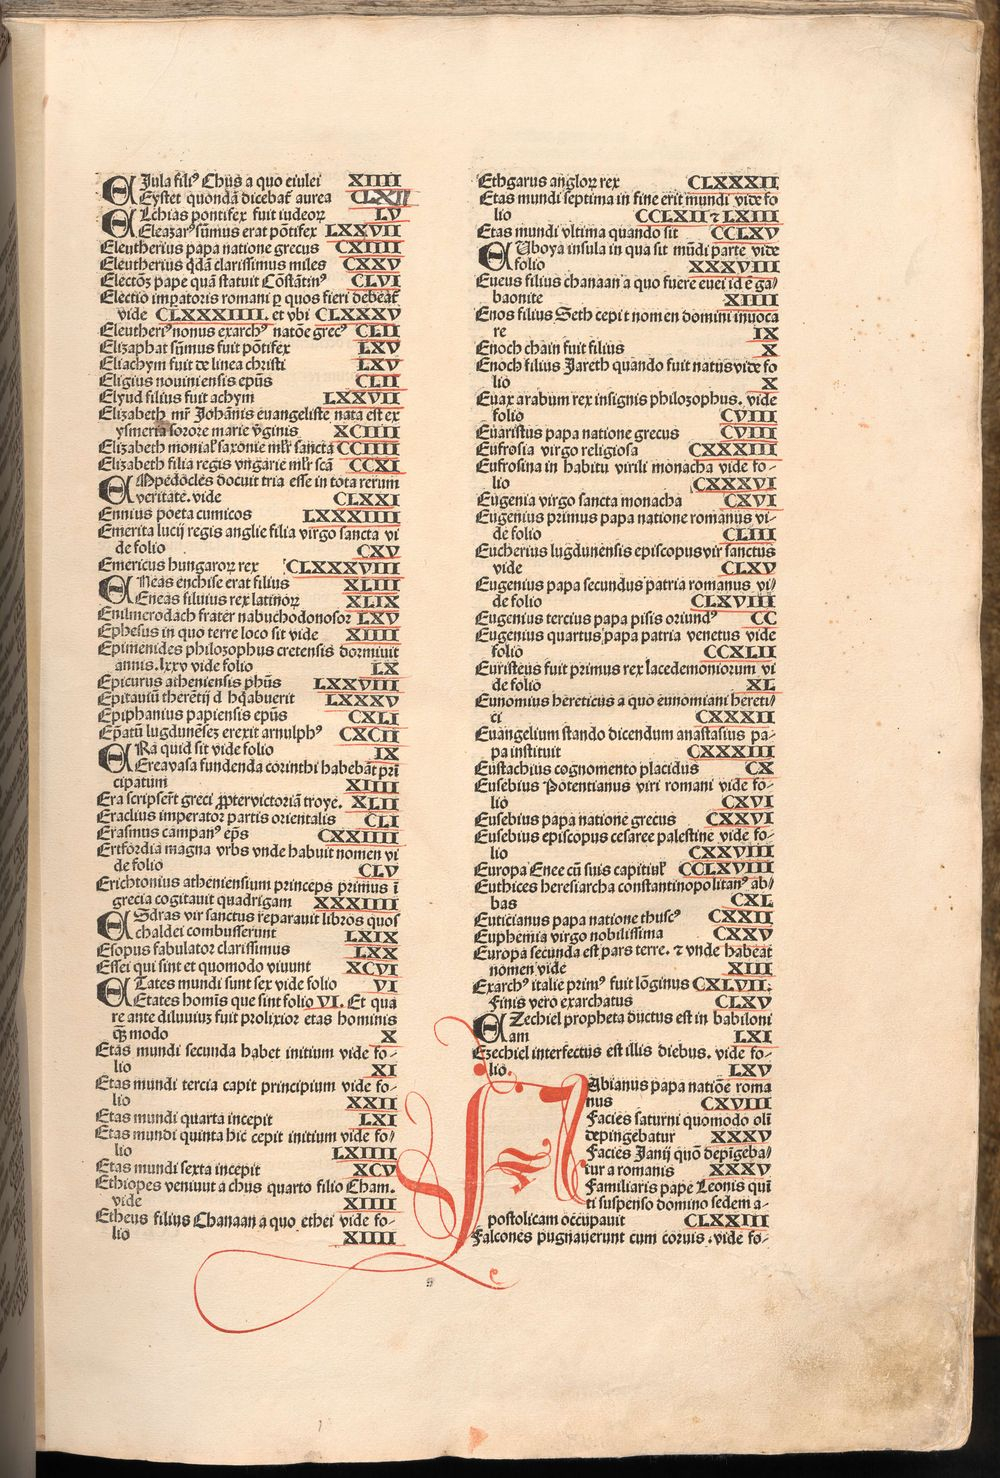 EJula filiꝰ Chus a quo eiulei XIIII
Eystet quondã dicebat̃ aurea CLXII
ELchias pontifex fuit iudeoꝝ LV
Eleazarꝰ sum̃us erat põtifex LXXVII
Eleutherius papa natione grecus CXIIII
Eleutherius q̃dã clarissimus miles CXXV
Electõʒ pape quã statuit Cõstãtinꝰ CLVI
Electio imꝑatoris romani ꝑ quos fieri debeat̃
vide CLXXXIIII. et vbi CLXXXV
Eleutheriꝰ nonus exarchꝰ natõe grecꝰ CLII
Elizaphat sũmus fuit põtifex LXV
Eliachym fuit de linea christi LXV
Eligius nouiniensis ep̃us CLII
Elyud filius fuit achym LXXVII
Elizabeth mr̃ Johãnis euangeliste nata est ex
ysmeria sorore marie v̓ginis XCIIII
Elizabeth monial̓ saxonie mr̃ sancta CCIIII
Elizabeth filia regis vngarie mr̃ scã CCXI
EMpedocles docuit tria esse in tota rerum
veritate. vide CLXXI
Ennius poeta cumicos LXXXIIII
Emerita lucij regis anglie filia virgo sancta vi
de folio CXV
Emericus hungaroꝝ rex CLXXXVIII
ENeas enchise erat filius XLIII
Eneas siluius rex latinoꝝ XLIX
Enilmerodach frater nabuchodonosoꝝ LXV
Ephesus in quo terre loco sit vide XIIII
Epimenides philozophus cretensis dormiuit
annis.lxxv vide folio LX
Epicurus atheniensis ph̃us LXXVIII
Epitauiũ therẽtij d hq̃abuerit LXXXV
Epiphanius papiensis ep̃us CXLI
Ep̃atũ lugdunẽseʒ erexit arnulphꝰ CXCII
ERa quid sit vide folio IX
Ereavasa fundenda corinthi habebãt pri
cipatum XIIII
Era scripser̃t greci ꝓptervictoriã troye. XLII
Eraclius imperator partis orientalis CLI
Erasmus campanꝰ ep̃s CXXIIII
Ertfordia magna vrbs vnde habuit nomen vi
de folio CLV
Erichtonius atheniensium princeps primus ĩ
grecia cogitauit quadrigam XXXIIII
ESdras vir sanctus reparauit libros quos
chaldei combusserunt LXIX
Esopus fabulator clarissimus LXX
Essei qui sint et quomodo viuunt XCVI
ETates mundi sunt sex vide folio VI
Etates homĩs que sint folio VI. Et qua
re ante diluuiuʒ fuit prolixior etas hominis
q̃ʒ modo X
Etas mundi secunda habet initium vide fo-
lio XI
Etas mundi tercia capit principium vide fo-
lio XXII
Etas mundi quarta incepit LXI
Etas mundi quinta hic cepit initium vide fo/
lio LXIIII
Etas mundi sexta incepit XCV
Ethiopes veniuut a chus quarto filio Cham.
vide XIIII
Etheus filius Chanaan a quo ethei vide fo-
lio XIIII
Ethgarus angloꝝ rex CLXXXII
Etas mundi septima in fine erit mundi vide fo
lio CCLXII ⁊ LXIII
Etas mundi vltima quando sit CCLXV
EUboya insula in qua sit mũdi parte vide
folio XXXVIII
Eueus filius chanaan a quo fuere euei id ẽ ga/
baonite XIIII
Enos filius Seth cepit nomen domini inuoca
re IX
Enoch chain fuit filius X
Enoch filius Jareth quando fuit natus vide fo
lio X
Euax arabum rex insignis philozophus. vide
folio CVIII
Euaristus papa natione grecus CVIII
Eufrosia virgo religiosa CXXXIII
Eufrosina in habitu virili monacha vide fo-
lio CXXXVI
Eugenia virgo sancta monacha CXVI
Eugenius primus papa natione romanus vi-
de folio CLIII
Eucherius lugdunensis episcopus vir sanctus
vide CLXV
Eugenius papa secundus patria romanus vi/
de folio CLXVIII
Eugenius tercius papa pisis oriundꝰ CC
Eugenius quartus papa patria venetus vide
folio CCXLII
Euristeus fuit primus rex lacedemoniorum vi
de folio XL
Eunomius hereticus a quo eunomiani hereti/
ci CXXXII
Euangelium stando dicendum anastasius pa-
pa instituit CXXXIII
Eustachius cognomento placidus CX
Eusebius Potentianus viri romani vide fo-
lio CXVI
Eusebius papa natione grecus CXXVI
Eusebius episcopus cesaree palestine vide fo-
lio CXXVIII
Europa Enee cũ suis capitiul̓ CCLXVIII
Euthices heresiarcha constantinopolitanꝰ ab/
bas CXL
Euticianus papa natione thuscꝰ CXXII
Euphemia virgo nobilissima CXXV
Europa secunda est pars terre. ⁊ vnde habeat
nomen vide XIII
Exarchꝰ italie primꝰ fuit lõginus CXLVII:
finis vero exarchatus CLXV
EZechiel propheta ductus est in babiloni
am LXI
Ezechiel interfectus est illis diebus. vide fo-
lio. LXV
FAbianus papa natiõe roma
nus CXVIII
Facies saturni quomodo oli
depingebatur XXXV
Facies Janij quõ depĩgeba/
tur a romanis XXXV
Familiaris pape Leonis qui
ti suspenso domino sedem a-
postolicam occupauit CLXXIII
Falcones pugnauerunt cum coruis .vide fo-